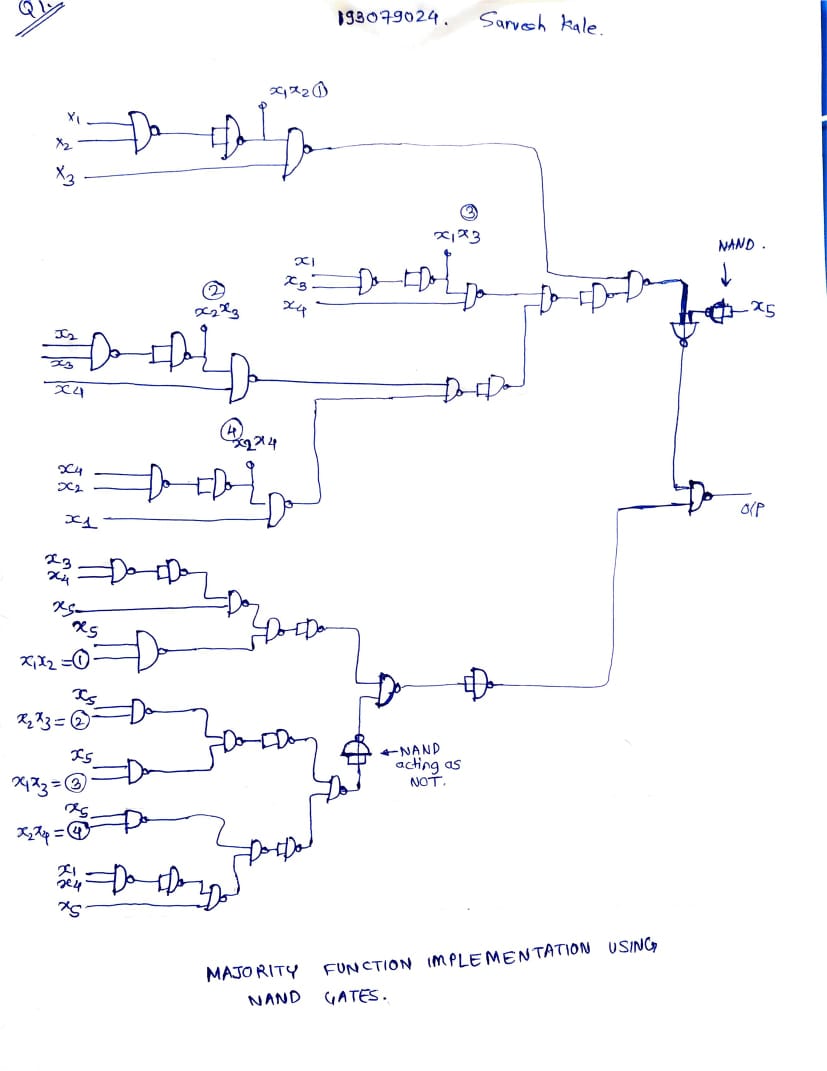 Q1.
193079024. Sarvesh Kale.
x1x2 ①
x1
x2
x3
③
x1x3
NAND.
x1
x3
x4
x5
②
x2x3
x2
x3
x4
④
x2x4
x4
x2
x1
O/P
x3
x4
x5
x5
x1x2 = ①
x5
x2x3 = ②
NAND
acting as
NOT.
x5
x1x3 = ③
x5
x2x4 = ④
x1
x4
x5
MAJORITY FUNCTION IMPLEMENTATION USING
NAND GATES.